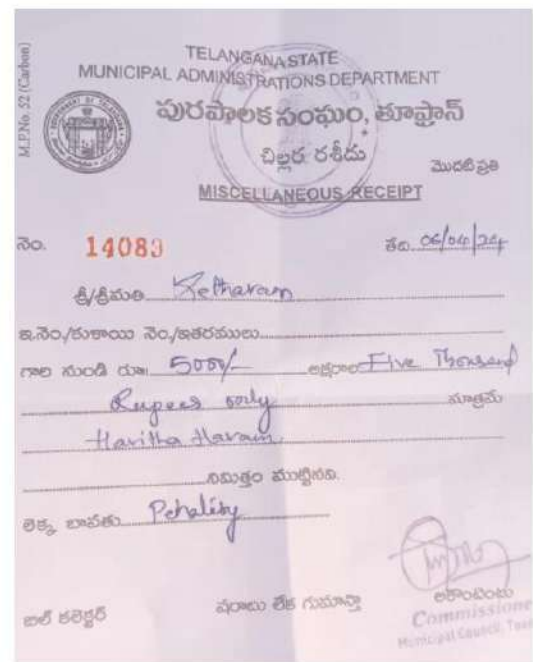 M.P.No. 22 (Carbon)
TELANGANA STATE
MUNICIPAL ADMINISTRATIONS DEPARTMENT
పురపాలక సంఘం, తూప్రాన్
చిల్లర రశీదు
మొదటి ప్రతి
MISCELLANEOUS RECEIPT
నెం. 14083 తేది. 06/04/24
శ్రీ/శ్రీమతి Ketharam
ఇ.నెం./దుకాణం నెం./ఇతరములు
గారి నుండి రూ॥ 5000/- అక్షరాల Five Thousand
Rupees only మాత్రమే
Haritha Haram
నిమిత్తం ముట్టినవి.
లెక్క బాపతు Penality
బిల్ కలెక్టర్ షరాబు లేక గుమాస్తా అకౌంటెంటు
Commissioner
Municipal Council,